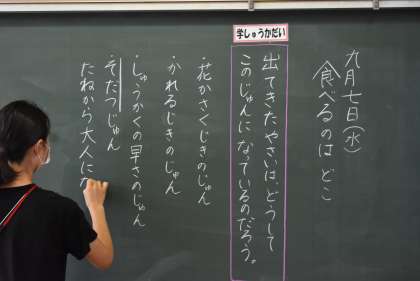 九月七日(水)
食べるのは どこ
学しゅうかだい
出てきたやさいは、どうして
このじゅんになっているのだろう。
・花がさくじきのじゅん
・かれるじきのじゅん
・しゅうかくの早さのじゅん
・そだつじゅん
たねから大人に